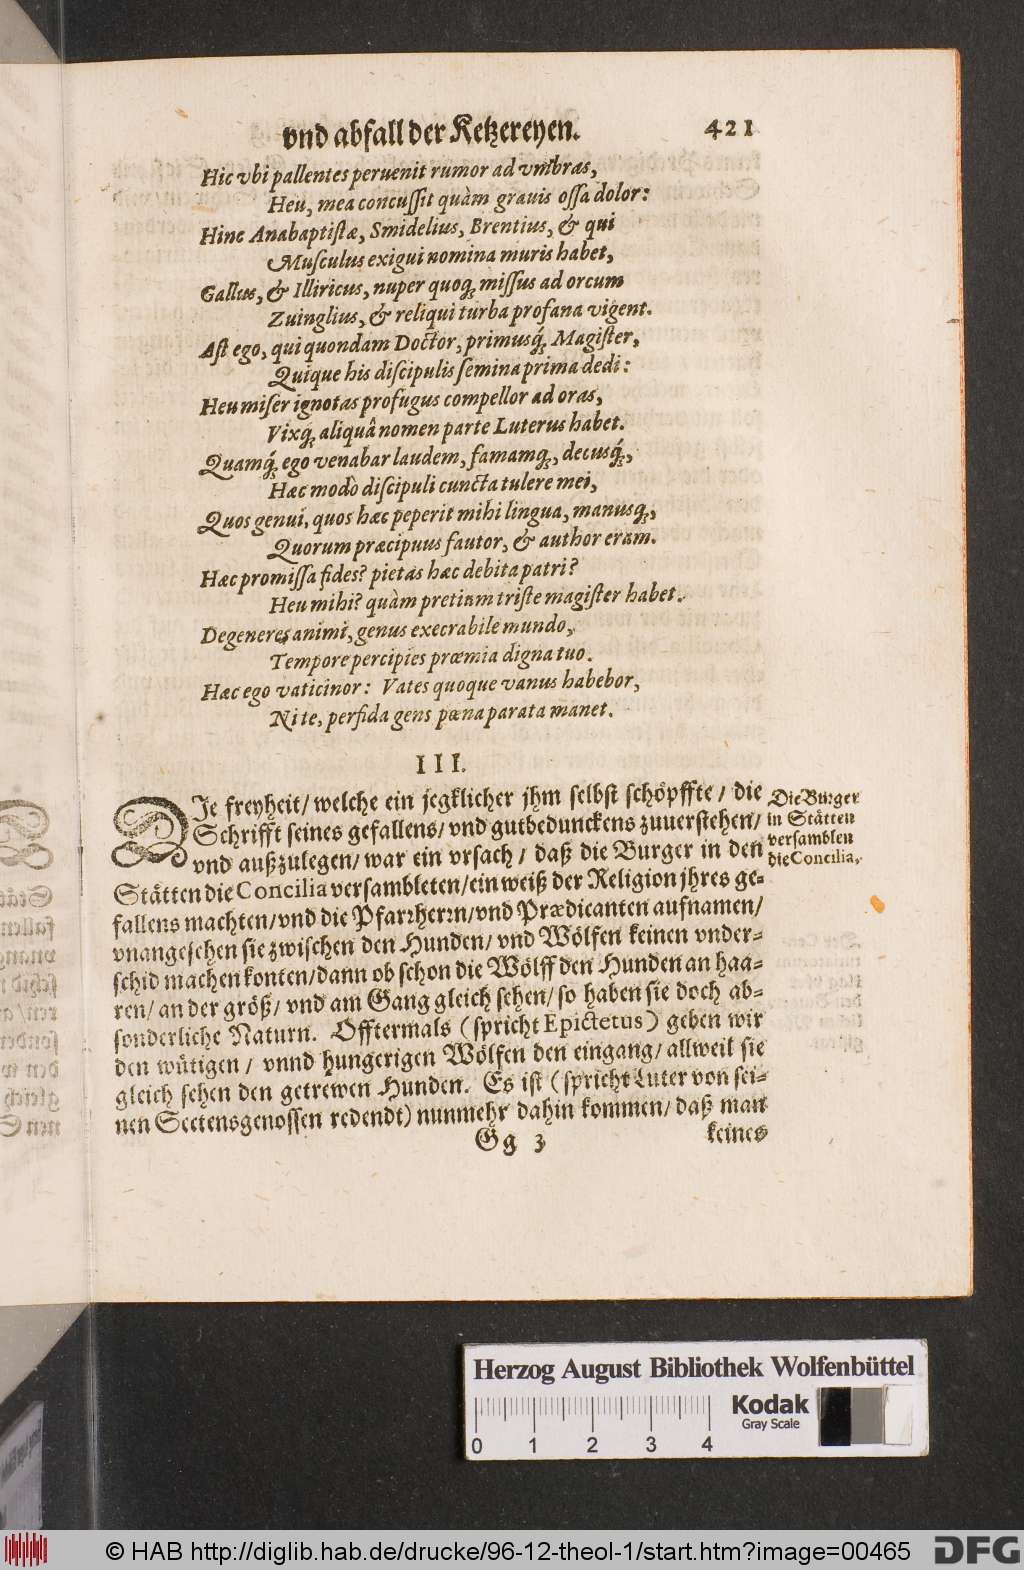 vnd abfall der Ketzereyen. 421
Hic vbi pallentes peruenit rumor ad vmbras,
Heu, mea concuſſit quàm grauis oſſa dolor:
Hinc Anabaptiſtæ, Smidelius, Brentius, & qui
Muſculus exigui nomina muris habet,
Gallus, & Illiricus, nuper quoq; miſſus ad orcum
Zuinglius, & reliqui turba profana vigent.
Aſt ego, qui quondam Doctor, primusq́; Magiſter,
Quique his diſcipulis ſemina prima dedi:
Heu miſer ignotas profugus compellor ad oras,
Vixq; aliquâ nomen parte Luterus habet.
Quamq́; ego venabar laudem, famamq;, decusq́;,
Hæc modò diſcipuli cuncta tulere mei,
Quos genui, quos hæc peperit mihi lingua, manusq;,
Quorum præcipuus fautor, & author eram.
Hæc promiſſa fides? pietas hæc debita patri?
Heu mihi? quàm pretium triſte magiſter habet.
Degeneres animi, genus execrabile mundo,
Tempore percipies præmia digna tuo.
Hæc ego vaticinor: Vates quoque vanus habebor,
Ni te, perfida gens pœna parata manet.
III.
DIe freyheit/ welche ein jegklicher jhm ſelbſt ſchöpffte/ die
Schrifft ſeines gefallens/ vnd gutbedunckens zuuerſtehen/
vnd außzulegen/ war ein vrſach/ daß die Burger in den
Stätten die Concilia verſambleten/ ein weiß der Religion jhres ge-
fallens machten/ vnd die Pfarrherrn/ vnd Prædicanten aufnamen/
vnangeſehen ſie zwiſchen den Hunden/ vnd Wölfen keinen vnder-
ſchid machen konten/ dann ob ſchon die Wölff den Hunden an haa-
ren/ an der größ/ vnd am Gang gleich ſehen/ ſo haben ſie doch ab-
ſonderliche Naturn. Offtermals (ſpricht Epictetus) geben wir
den wütigen/ vnnd hungerigen Wölfen den eingang/ allweil ſie
gleich ſehen den getrewen Hunden. Es iſt (ſpricht Luter von ſei-
nen Sectensgenoſſen redendt) nunmehr dahin kommen/ daß man
Gg 3 keines
Die Burger
in Stätten
verſamblen
die Concilia.
Herzog August Bibliothek Wolfenbüttel
Kodak
Gray Scale
0 1 2 3 4
© HAB http://diglib.hab.de/drucke/96-12-theol-1/start.htm?image=00465
DFG